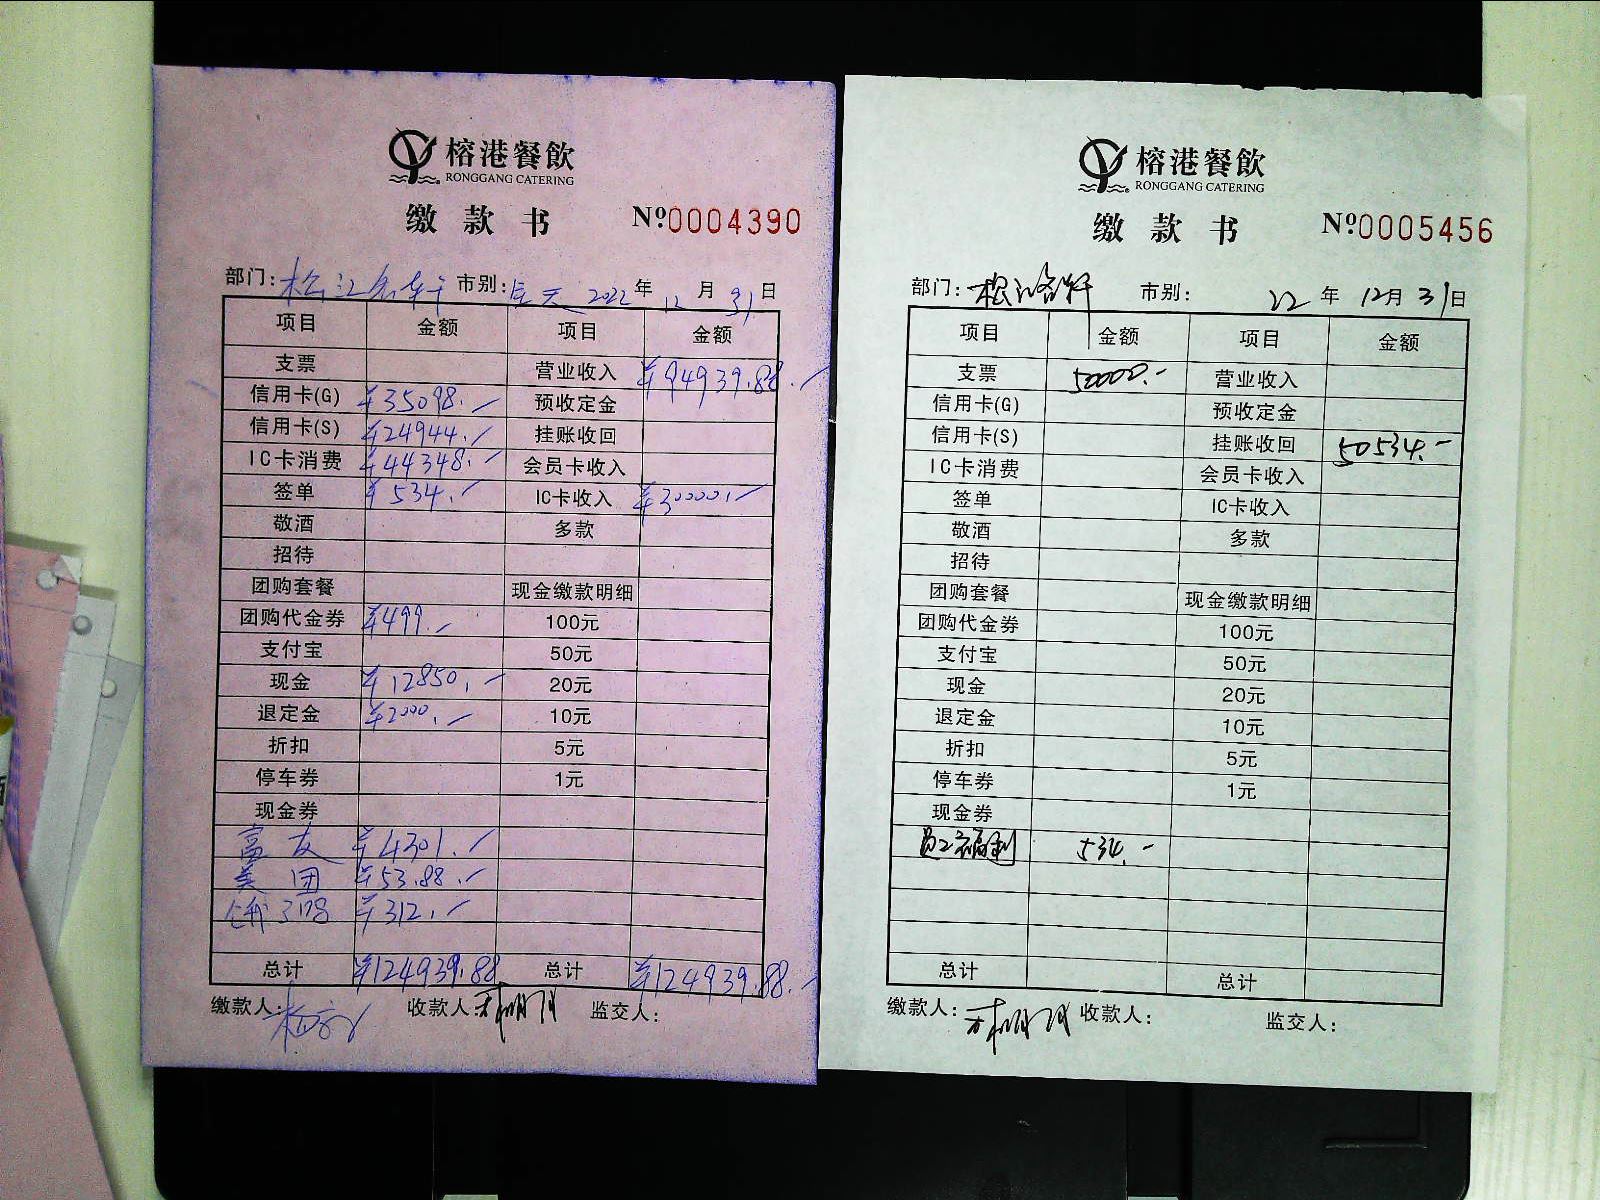 榕港餐飲
RONGGANG CATERING
缴款书 Nº0004390
部门: 松江 市别: 全天 2022年12月31日
项目 金额 项目 金额
支票 营业收入 ¥94939.88.-
信用卡(G) ¥35098.- 预收定金
信用卡(S) ¥24944.- 挂账收回
IC卡消费 ¥44348.- 会员卡收入
签单 ¥534.- IC卡收入 ¥30000.-
敬酒 多款
招待
团购套餐 现金缴款明细
团购代金券 ¥499.- 100元
支付宝 50元
现金 ¥12850.- 20元
退定金 ¥2000.- 10元
折扣 5元
停车券 1元
现金券
富友 ¥4301.-
美团 ¥53.88.-
饿了吗 ¥312.-
总计 ¥124939.88 总计 ¥124939.88.-
缴款人: 收款人: 监交人:
榕港餐飲
RONGGANG CATERING
缴款书 Nº0005456
部门: 市别: 22年12月31日
项目 金额 项目 金额
支票 50000.- 营业收入
信用卡(G) 预收定金
信用卡(S) 挂账收回 50534.-
IC卡消费 会员卡收入
签单 IC卡收入
敬酒 多款
招待
团购套餐 现金缴款明细
团购代金券 100元
支付宝 50元
现金 20元
退定金 10元
折扣 5元
停车券 1元
现金券
员工福利 534.-
总计 总计
缴款人: 收款人: 监交人: